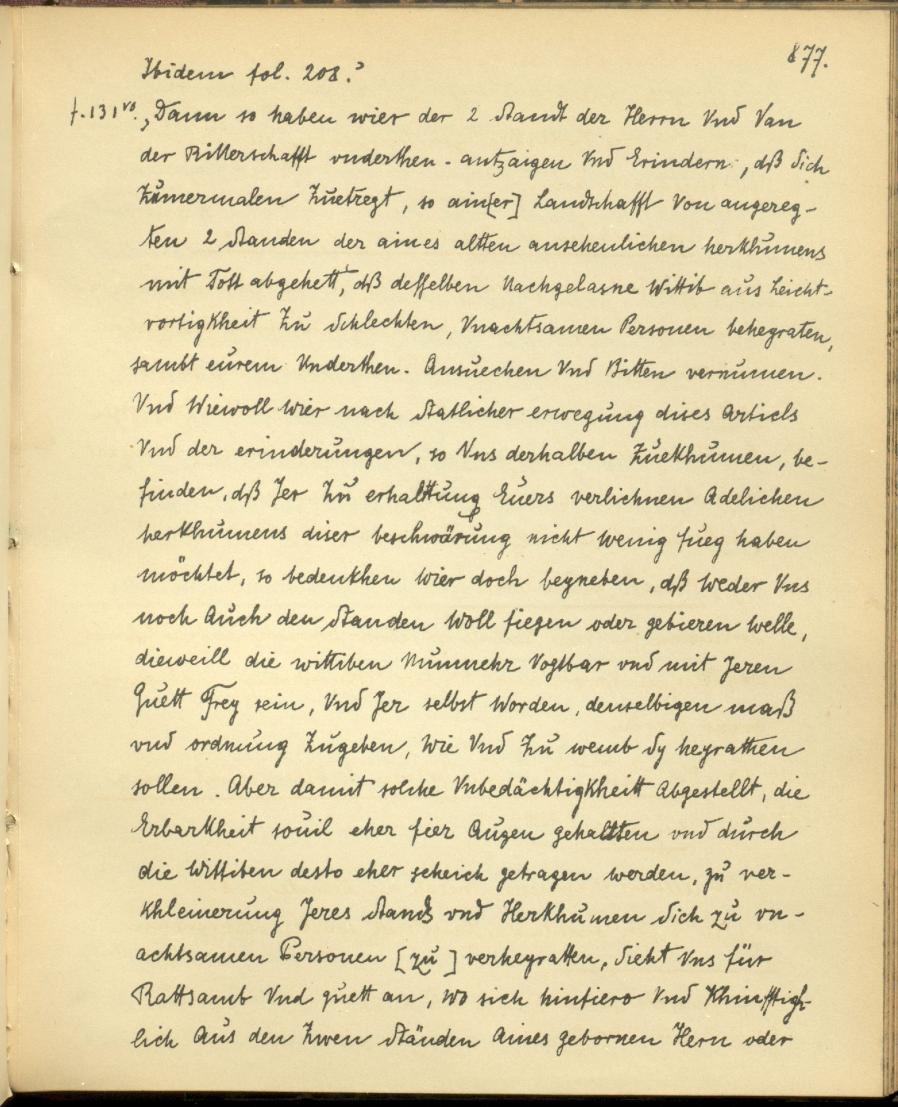 877.
Ibidem fol. 208.
f. 131 vo. „Dann so haben wier der 2 Standt der Herrn Vnd Van
der Ritterschafft vnderthen. antzaigen Vnd Erindern, dß Sich
Zumermalen Zuetregt, so ain[er] Landtschafft Von angereg-
ten 2 Standen der aines altten ansehenlichen herkhumens
mit Tott abgehett, dß desselben Nachgelasne Wittib aus Leicht-
vortigkheit Zu Schlechten, Vnachtsamen Personen behegraten,
sambt eurem Underthen. Ansuechen Vnd Bitten vernumen.
Vnd Wiewoll Wier nach Statlicher erwegung dises Articls
Vnd der erinderungen, so Vns derhalben Zuekhumen, be-
finden, dß Jer Zu erhalttung Euers verlichnen Adelichen
herkhumens diser beschwärung nicht wenig fueg haben
möchtet, so bedenkhen Wier doch beyneben, dß Weder Vns
noch Auch den Standen Woll fiegen oder gebieren Welle,
dieweill die wittiben Nunmehr Vogtbar vnd mit Jeren
Guett Frey sein, Vnd Jer selbst Worden, denselbigen maß
vnd ordnung Zugeben, Wie Vnd Zu wemb Sy heyrathen
sollen. Aber damit solche Vnbedächtigkheitt Abgestellt, die
Erbarkheit souil eher fier Augen gehaltten vnd durch
die Wittiben desto eher scheich getragen werden, zu ver-
khleinerung Jeres Stands vnd Herkhumen Sich zu vn-
achtsamen Personen [zu] verhegratten, Sieht Vns für
Rattsamb Vnd guett an, Wo sich hinfiero Vnd Khinfftigh-
lich Aus den Zwen Ständen Aines gebornen Hern oder